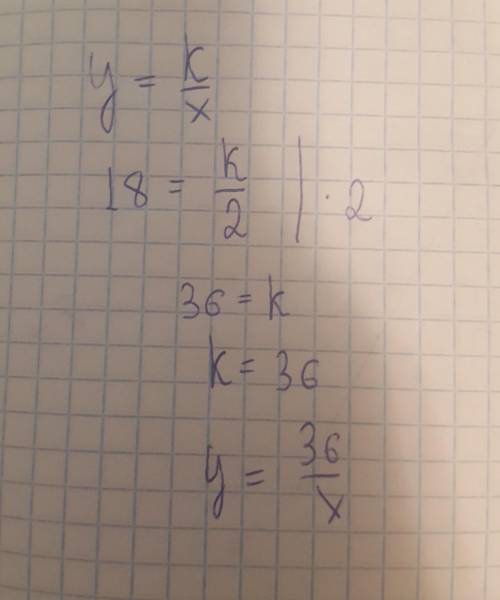 y = k/x
18 = k/2 | · 2
36 = k
k = 36
y = 36/x